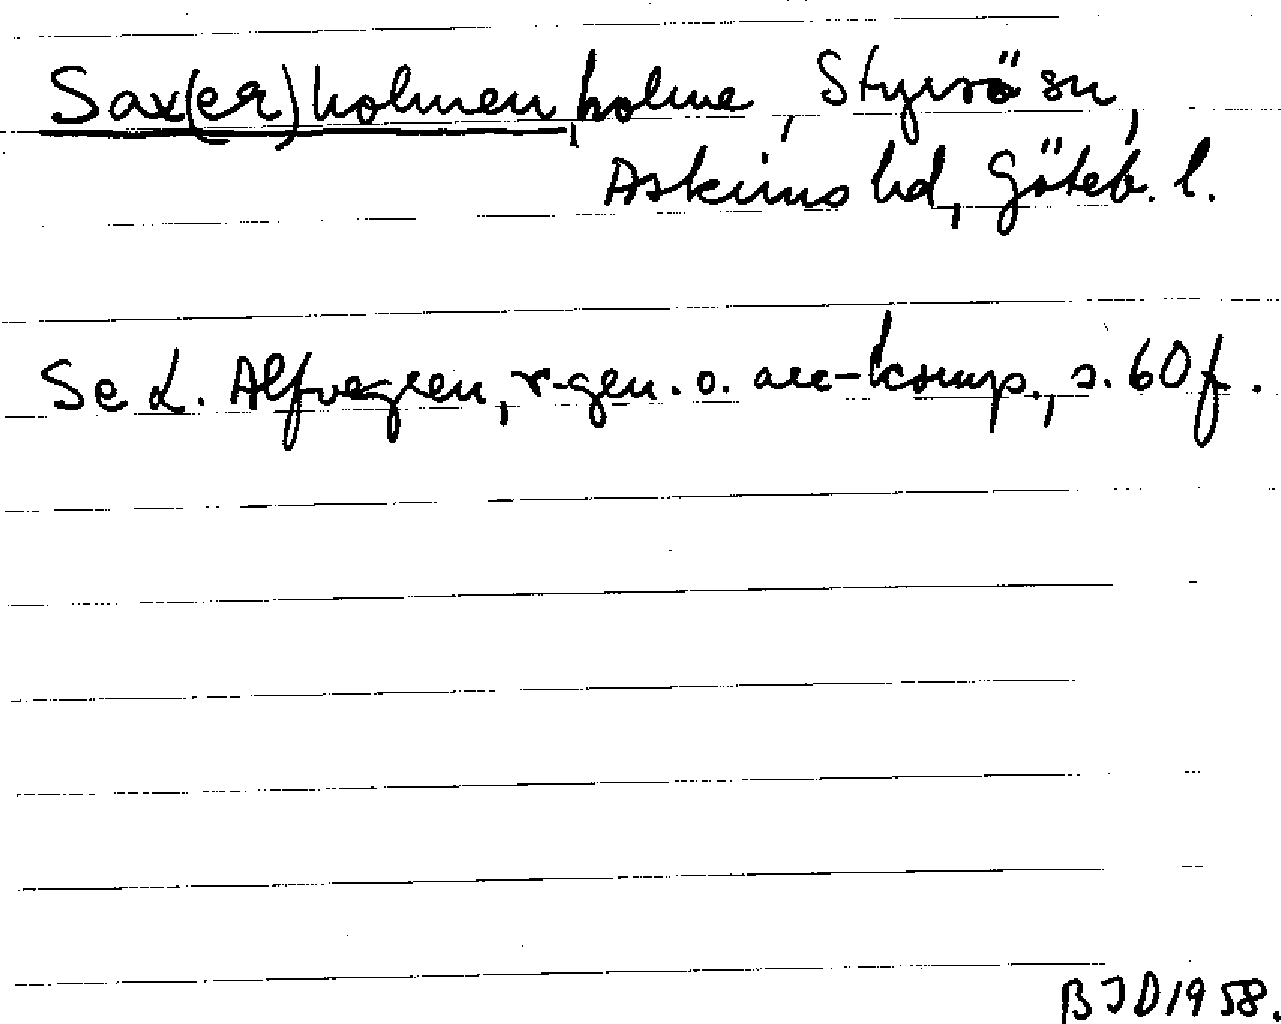 Sax(er)holmen, holme, Styrsö sn,
Askims hd, Göteb. l.
Se L. Alfvegren, r-gen. o. are-komp., s. 60 f.
BJD 1958.